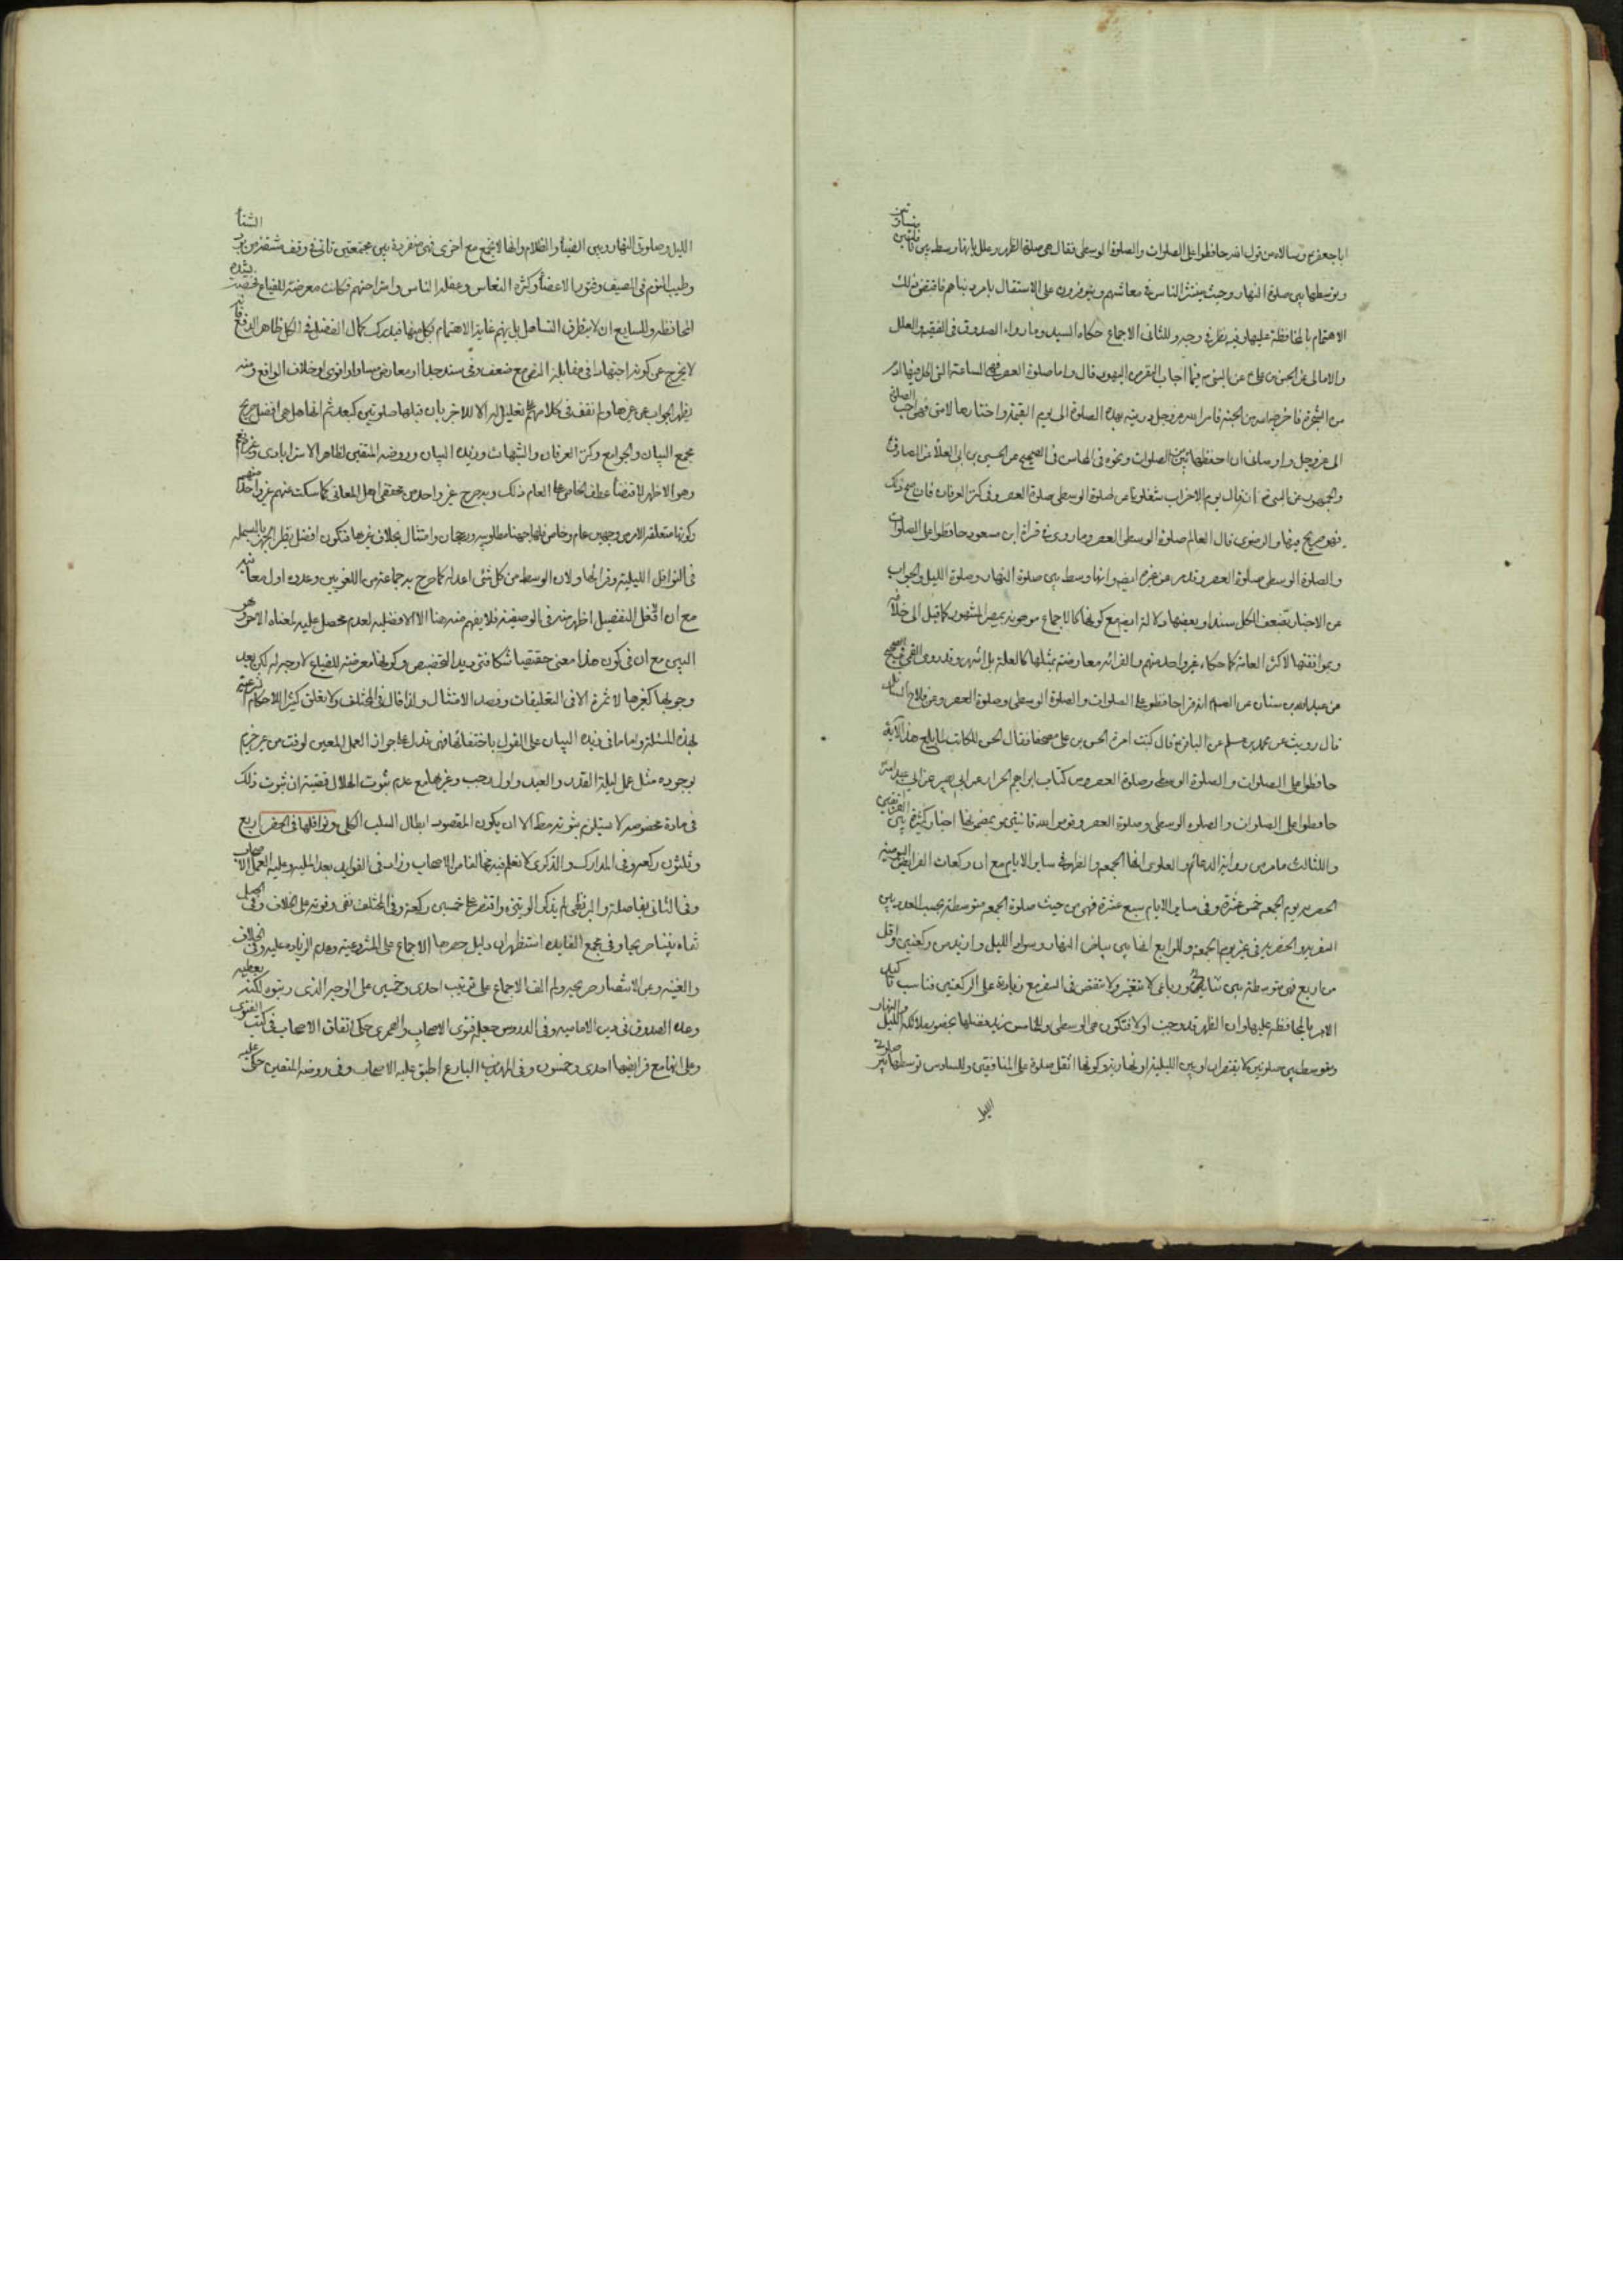 ابا جعفر ع وسالاه من قول الله حافظوا على الصلوات والصلوة الوسطى فقال هى صلوة الظهر وعلل بانها وسط بين
وتوسطها بين صلوة النهار وحيث ينتشر الناس فى معاشهم على الاستقال بامر دنياهم فاقتضى ذلك
الاهتمام بالمحافظة عليها وفيه نظر وجهه وللثانى الاجماع حكاه السيد وما رواه الصدوق فى الفقيه والعلل
والامالى عن الحسن بن على ع عن النبى ص فيما اجاب اليهود قال واما صلوة العصر فهى الساعة التى اكل فيها ادم
من الشجرة فاخرجه الله من الجنة فامر الله عز وجل ذريته بهذه الصلوة الى يوم القيمة واختارها لامتى فهى احب الصلوة
الى عز وجل واوصانى ان احفظها من بين الصلوات ونحوه فى المحاسن فى الصحيح عن الحسين بن ابى العلاء عن الصادق ع
والجمهور عن النبى ص انه قال يوم الاحزاب شغلونا عن صلوة الوسطى صلوة العصر وفى كنز العرفان فان صح ذلك
فهو صريح فيها والرضوى قال العالم صلوة الوسطى العصر وما روى فى قراءة ابن مسعود حافظوا على الصلوات
والصلوة الوسطى صلوة العصر وقد مر عن غيره ايضا وانها وسط بين صلوة النهار وصلوة الليل والجواب
عن الاخبار بضعف الكل سندا وبعضها دلالة ايضا مع كونها كالاجماع موهونة بمصير المشهور كما قيل الى خلافه
وبموافقتها لاكثر العامة كما حكاه غير واحد منهم والقراءة معارضة بمثلها كالعلة بل اشهر وقد روى القمى فى الصحيح
عن عبد الله بن سنان عن الصادق ع انه قرا حافظوا على الصلوات والصلوة الوسطى وصلوة العصر وعن فلاح السائل
قال رويت عن محمد بن مسلم عن الباقر ع قال كتبت امرة الحسن بن على مصحفا فقال الحسن للكاتب لما بلغ هذه الاية
حافظوا على الصلوات والصلوة الوسطى وصلوة العصر ومن كتاب ابراهيم الخزاز عن ابى بصير عن ابى عبد الله ع
حافظوا على الصلوات والصلوة الوسطى وصلوة العصر وقوموا لله قانتين وبمضمونها اخبار كثيرة من الفريقين
وللثالث ما مر من رواية الدعائم والعلوى انها الجمعة والظهر فى ساير الايام مع ان ركعات الفرايض اليومية
الحضرية يوم الجمعة خمس عشرة وفى ساير الايام سبع عشرة فهى من حيث صلوة الجمعة متوسطة بحسب العدد بين
السفرية والحضرية فى غير يوم الجمعة وللرابع انها بين بياض النهار وسواد الليل وازيد من ركعتين واقل
من اربع فهى متوسطة بين ثنائى ورباعى لا تتغير ولا تنقص فى السفر مع زيادة على الركعتين فناسب تاكيد
الامر بالمحافظة عليها وان الظهر قد وجبت اولا فتكون هى الوسطى وللخامس مزيد فضلها بحضور ملائكة الليل والنهار
وتوسط بين صلوتين لا تقصران او بين الليلية او نهارية وكونها اثقل صلوة على المنافقين وللسادس توسطها بين صلوتى
الليل
الليل وصلوتى النهار وبين الضياء والظلام وانها لا تجمع مع اخرى فهى منفردة بين مجتمعتين تاتى فى وقت مشقة من برد الشتاء
وطيب النوم فى الصيف وفتور الاعضاء وكثرة النعاس وغفلة الناس واستراحتهم فكانت معرضة للضياع فخصت بشدة
المحافظة وللسابع ان لا يتطرق التساهل بل يهتم غاية الاهتمام بكل منها فيدرك كمال الفضل فى الكل ظاهر الدفع فانه
لا يخرج عن كونه اجتهادا فى مقابلة النص مع ضعف وفى سند جلها او معارض مساو او اقوى او خلاف الواقع ومنه
يظهر الجواب عن غيرها ولم نقف فى كلامهم على تعليل له الا للاخير بان قبلها صلوتين كبعد ثم انها هل هى افضل صريح
مجمع البيان والجوامع وكنز العرفان والشهاب وزبدة البيان وروضة المتقين لظاهر الاسترابادى وغيره نعم
وهو الاظهر لاقتضاء عطف الخاص على العام ذلك وبه صرح غير واحد من محققى اهل المعانى كما سكت عنهم غير واحد منهم
وكونها متعلقة الامر من وجهين عام وخاص فلها جهتا مطلوبية ورجحان وامتثال بخلاف غيرها فتكون افضل نظير الجهر بالبسملة
فى النوافل الليلية وقرانها ولان الوسط من كل شئ اعدله كما صرح به جماعة من اللغويين وعدوه اول معانيه
مع ان افعل التفضيل اظهر منه فى الوصفية فلا يفهم منه هنا الا الافضلية لعدم محصل عليه لمعناه الاخر وهو
البين مع ان فى كون هذا معنى حقيقيا شكا فتؤيد التخصيص وكونها معرضة للضياع لا وجه له لكن بعد
وجوبها كغيرها لا ثمرة الا فى التعليقات وقصد الامتثال ولذا قال فى المختلف ولا يتعلق كثير الاحكام الشرعية
بهذه المسئلة واما ما فى زبدة البيان على القول باختفائها فهى تدل على جواز العمل المعين لوقت من غير جزم
بوجوده مثل عمل ليلة القدر والعيد واول رجب وغيرها مع عدم ثبوت الهلال قضية ان ثبوت ذلك
فى مادة مخصوصة لا يستلزم ثبوته مطلقا الا ان يكون المقصود ابطال السلب الكلى ونوافلها فى الحضر اربع
وثلثون ركعة وفى المدارك والذكرى لا نعلم فيه مخالفا من الاصحاب وزاد فى الفوايد بعد الملية وعليه العمل الاصحاب
وفى الثانى بفاصلة والبزنطى لم يذكر الوتيرة واقتصر على خمسين ركعة وفى المختلف نفى وقوفه على الخلاف وفى الجبل
ثناه بفتياهم بها وفى مجمع الفايدة استظهر ان دليل حصرها الاجماع على المشروعية وعدم الزيادة عليه وفى الخلاف
والغنية وعن الانتصار صريحه ولم الف الاجماع على ترتيب احدى وخمسين على الوجه الذى رتبوه لكنه يعطيه
وعده الصدوق فى دين الامامية وفى الدروس جعله فتوى الاصحاب والصيمرى حكى اتفاق الاصحاب فى كتب الفتوى
وعلى انها مع فرايضها احدى وخمسون وفى المهذب البارع اطبق عليه الاصحاب وفى روضة المتقين حكى عليه